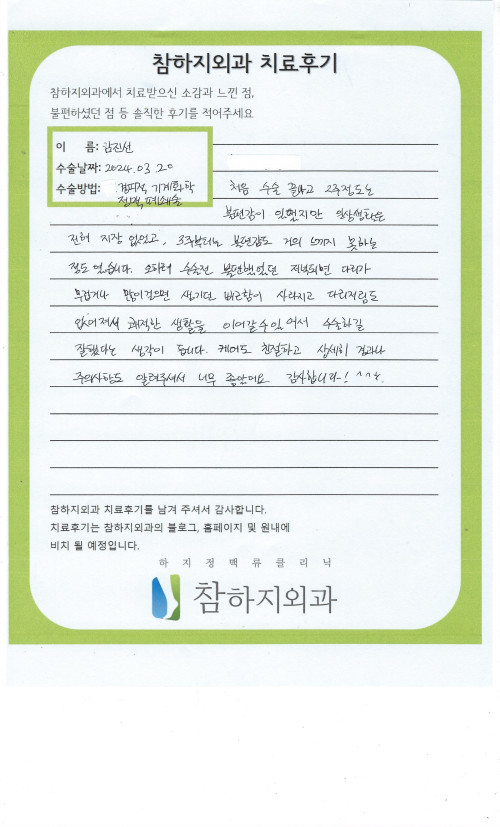 참하지외과 치료후기
참하지외과에서 치료받으신 소감과 느낀 점,
불편하셨던 점 등 솔직한 후기를 적어주세요
이 름: 감진선
수술날짜: 2024.03.20
수술방법: 경피적, 기계화학
정맥폐쇄술
처음 수술 끝나고 2주정도는
불편감이 있었지만 일상생활은
전혀 지장 없었고, 3주부터는 불편감도 거의 느끼지 못하는
정도 였습니다. 오히려 수술전 불편했었던 저녁되면 다리가
무겁거나 많이 걸으면 생기던 뻐근함이 사라지고 다리저림도
없어져서 쾌적한 생활을 이어갈 수 있어서 수술하길
잘했다는 생각이 듭니다. 케어도 친절하고 상세히 경과나
주의사항도 알려주셔서 너무 좋았어요 감사합니다! ^^
참하지외과 치료후기를 남겨 주셔서 감사합니다.
치료후기는 참하지외과의 블로그, 홈페이지 및 원내에
비치 될 예정입니다.
하지정맥류클리닉
참하지외과